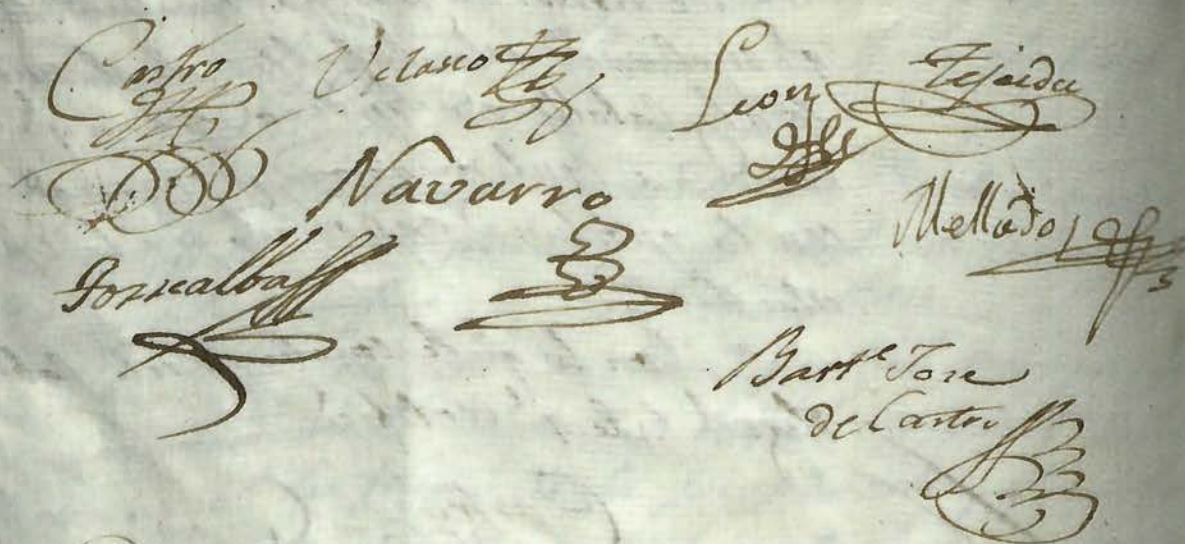 Castro Velasco Leon Tejeida
Navarro Mellado
Torrealba
Bart.e Jose
de Castro